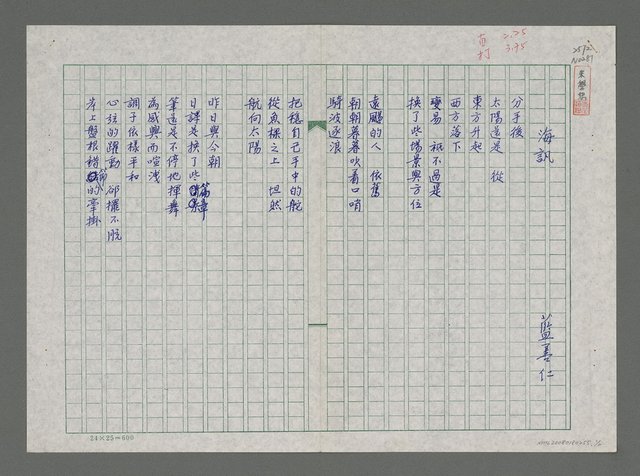 海訊
藍善仁
分手後
太陽還是 從
東方升起
西方落下
變易 祇不過是
換了些場景與方位
遠颺的人 依舊
朝朝暮暮吹着口哨
騎波逐浪
把穩自己手中的舵
從魚標之上 坦然
航向太陽
昨日與今朝
日課是換了些篇章
筆還是不停地揮舞
為感興而喧洩
調子依樣平和
心弦的躍動 卻擺不脫
岸上盤根錯節的牽掛
2.25
3.95
24×25=600